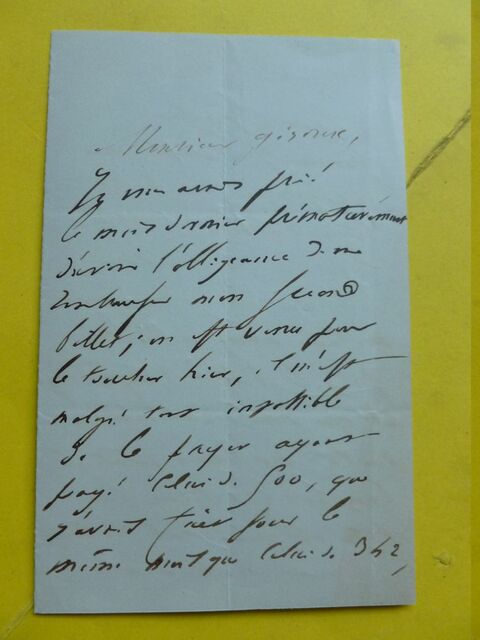 Monsieur
Je vous avais prié
le mois dernier prématurément
d'avoir l'obligeance de me
mon second
billet, on est venu pour
le toucher hier, il m'est
malgré tout impossible
de le payer ayant
payé celui de 500, que
j'avais pour le
même mois que celui de 342,